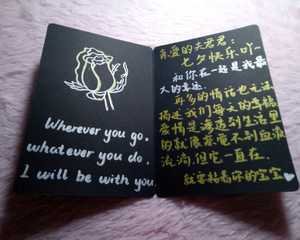 Wherever you go.
whatever you do.
I will be with you
亲爱的夫君君：
七夕快乐吖~
和你在一起是我最
大的幸运
再多的情话也无法
描述我们每天的幸福
爱情是渗透到生活里
的就像茶电不到血液
流淌，但它一直在.
就要黏着你的宝宝